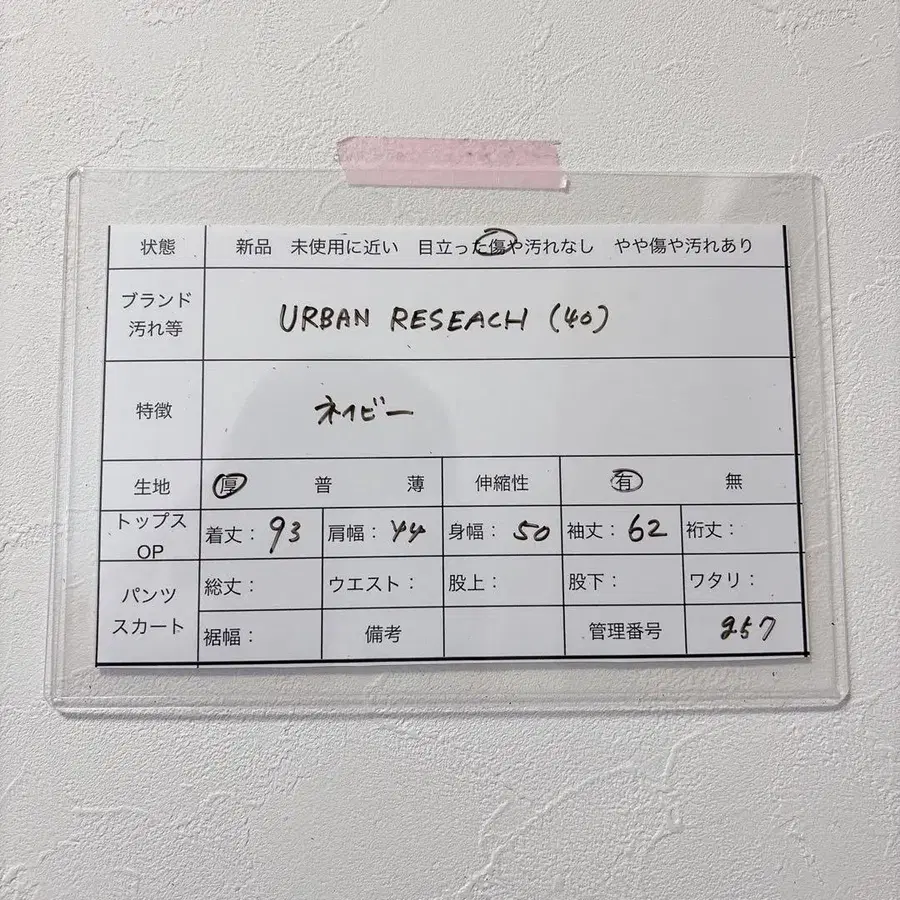 状態 新品 未使用に近い 目立った傷や汚れなし やや傷や汚れあり
ブランド
汚れ等
URBAN RESEACH (40)
特徴 ネイビー
生地 厚 普 薄 伸縮性 有 無
トップス
OP
着丈: 93 肩幅: 44 身幅: 50 袖丈: 62 裄丈:
パンツ
スカート
総丈: ウエスト: 股上: 股下: ワタリ:
裾幅: 備考 管理番号 257